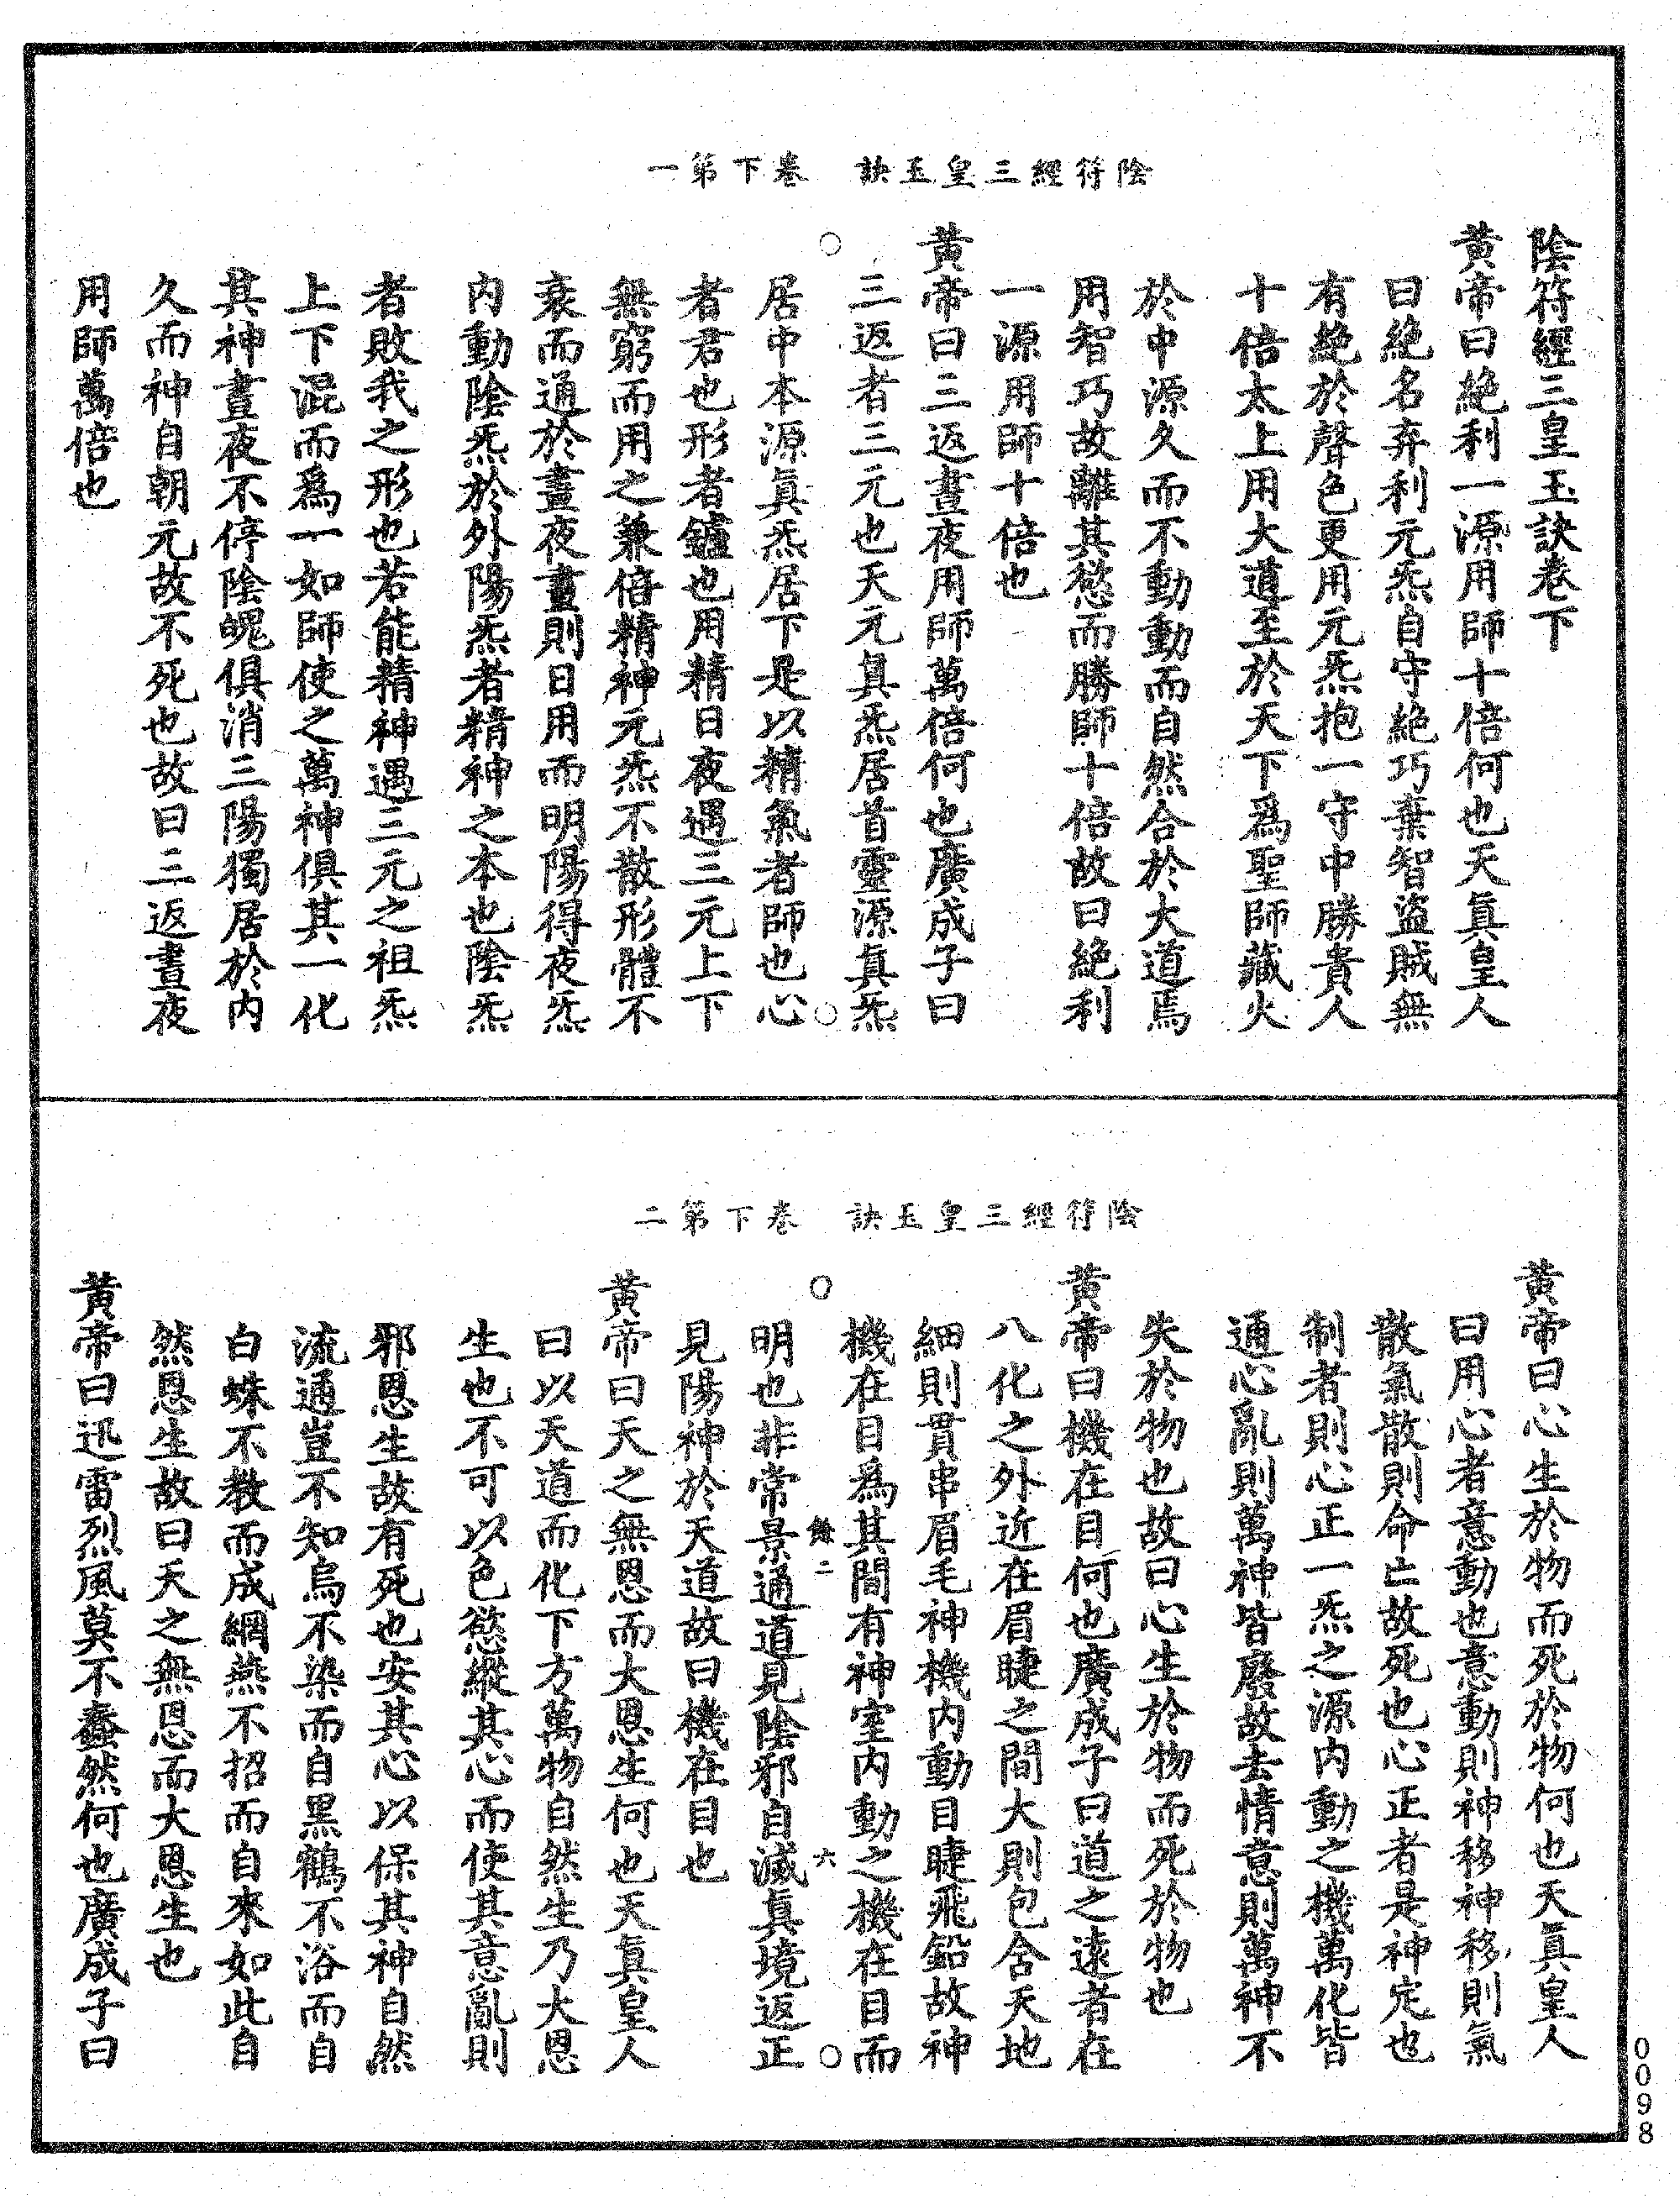 陰符經三皇玉訣　卷下第一
陰符經三皇玉訣卷下
黃帝曰絶利一源用師十倍何也天眞皇人
曰絶名弃利元炁自守絶巧棄智盜賊無
有絶於聲色更用元炁抱一守中勝貴人
十倍太上用大道至於天下爲聖師藏火
於中源久而不動動而自然合於大道焉
用智巧故離其慾而勝師十倍故曰絶利
一源用師十倍也
黃帝曰三返晝夜用師萬倍何也廣成子曰
三返者三元也天元眞炁居首靈源眞炁
居中本源眞炁居下是以精氣者師也心
者君也形者鑪也用精日夜遇三元上下
無窮而用之兼倍精神元炁不散形體不
衰而通於晝夜晝則日用而明陽得夜炁
内動陰炁於外陽炁者精神之本也陰炁
者敗我之形也若能精神遇三元之祖炁
上下混而爲一如師使之萬神俱其一化
其神晝夜不停陰魄俱消三陽獨居於内
久而神自朝元故不死也故曰三返晝夜
用師萬倍也
陰符經三皇玉訣　卷下第二
黃帝曰心生於物而死於物何也天眞皇人
曰用心者意動也意動則神移神移則氣
散氣散則命亡故死也心正者是神定也
制者則心正一炁之源内動之機萬化皆
通心亂則萬神皆廢故去情意則萬神不
失於物也故曰心生於物而死於物也
黃帝曰機在目何也廣成子曰道之遠者在
八化之外近在眉睫之間大則包含天地
細則貫串眉毛神機内動目睫飛鉛故神
機在目爲其間有神室内動之機在目而
餘二　六
明也非常景通道見陰邪自滅眞境返正
見陽神於天道故曰機在目也
黃帝曰天之無恩而大恩生何也天眞皇人
曰以天道而化下方萬物自然生乃大恩
生也不可以色慾縱其心而使其意亂則
邪恩生故有死也安其心以保其神自然
流通豈不知烏不染而自黑鶴不浴而自
白蛛不教而成網燕不招而自來如此自
然恩生故曰天之無恩而大恩生也
黃帝曰迅雷烈風莫不蠢然何也廣成子曰
0098